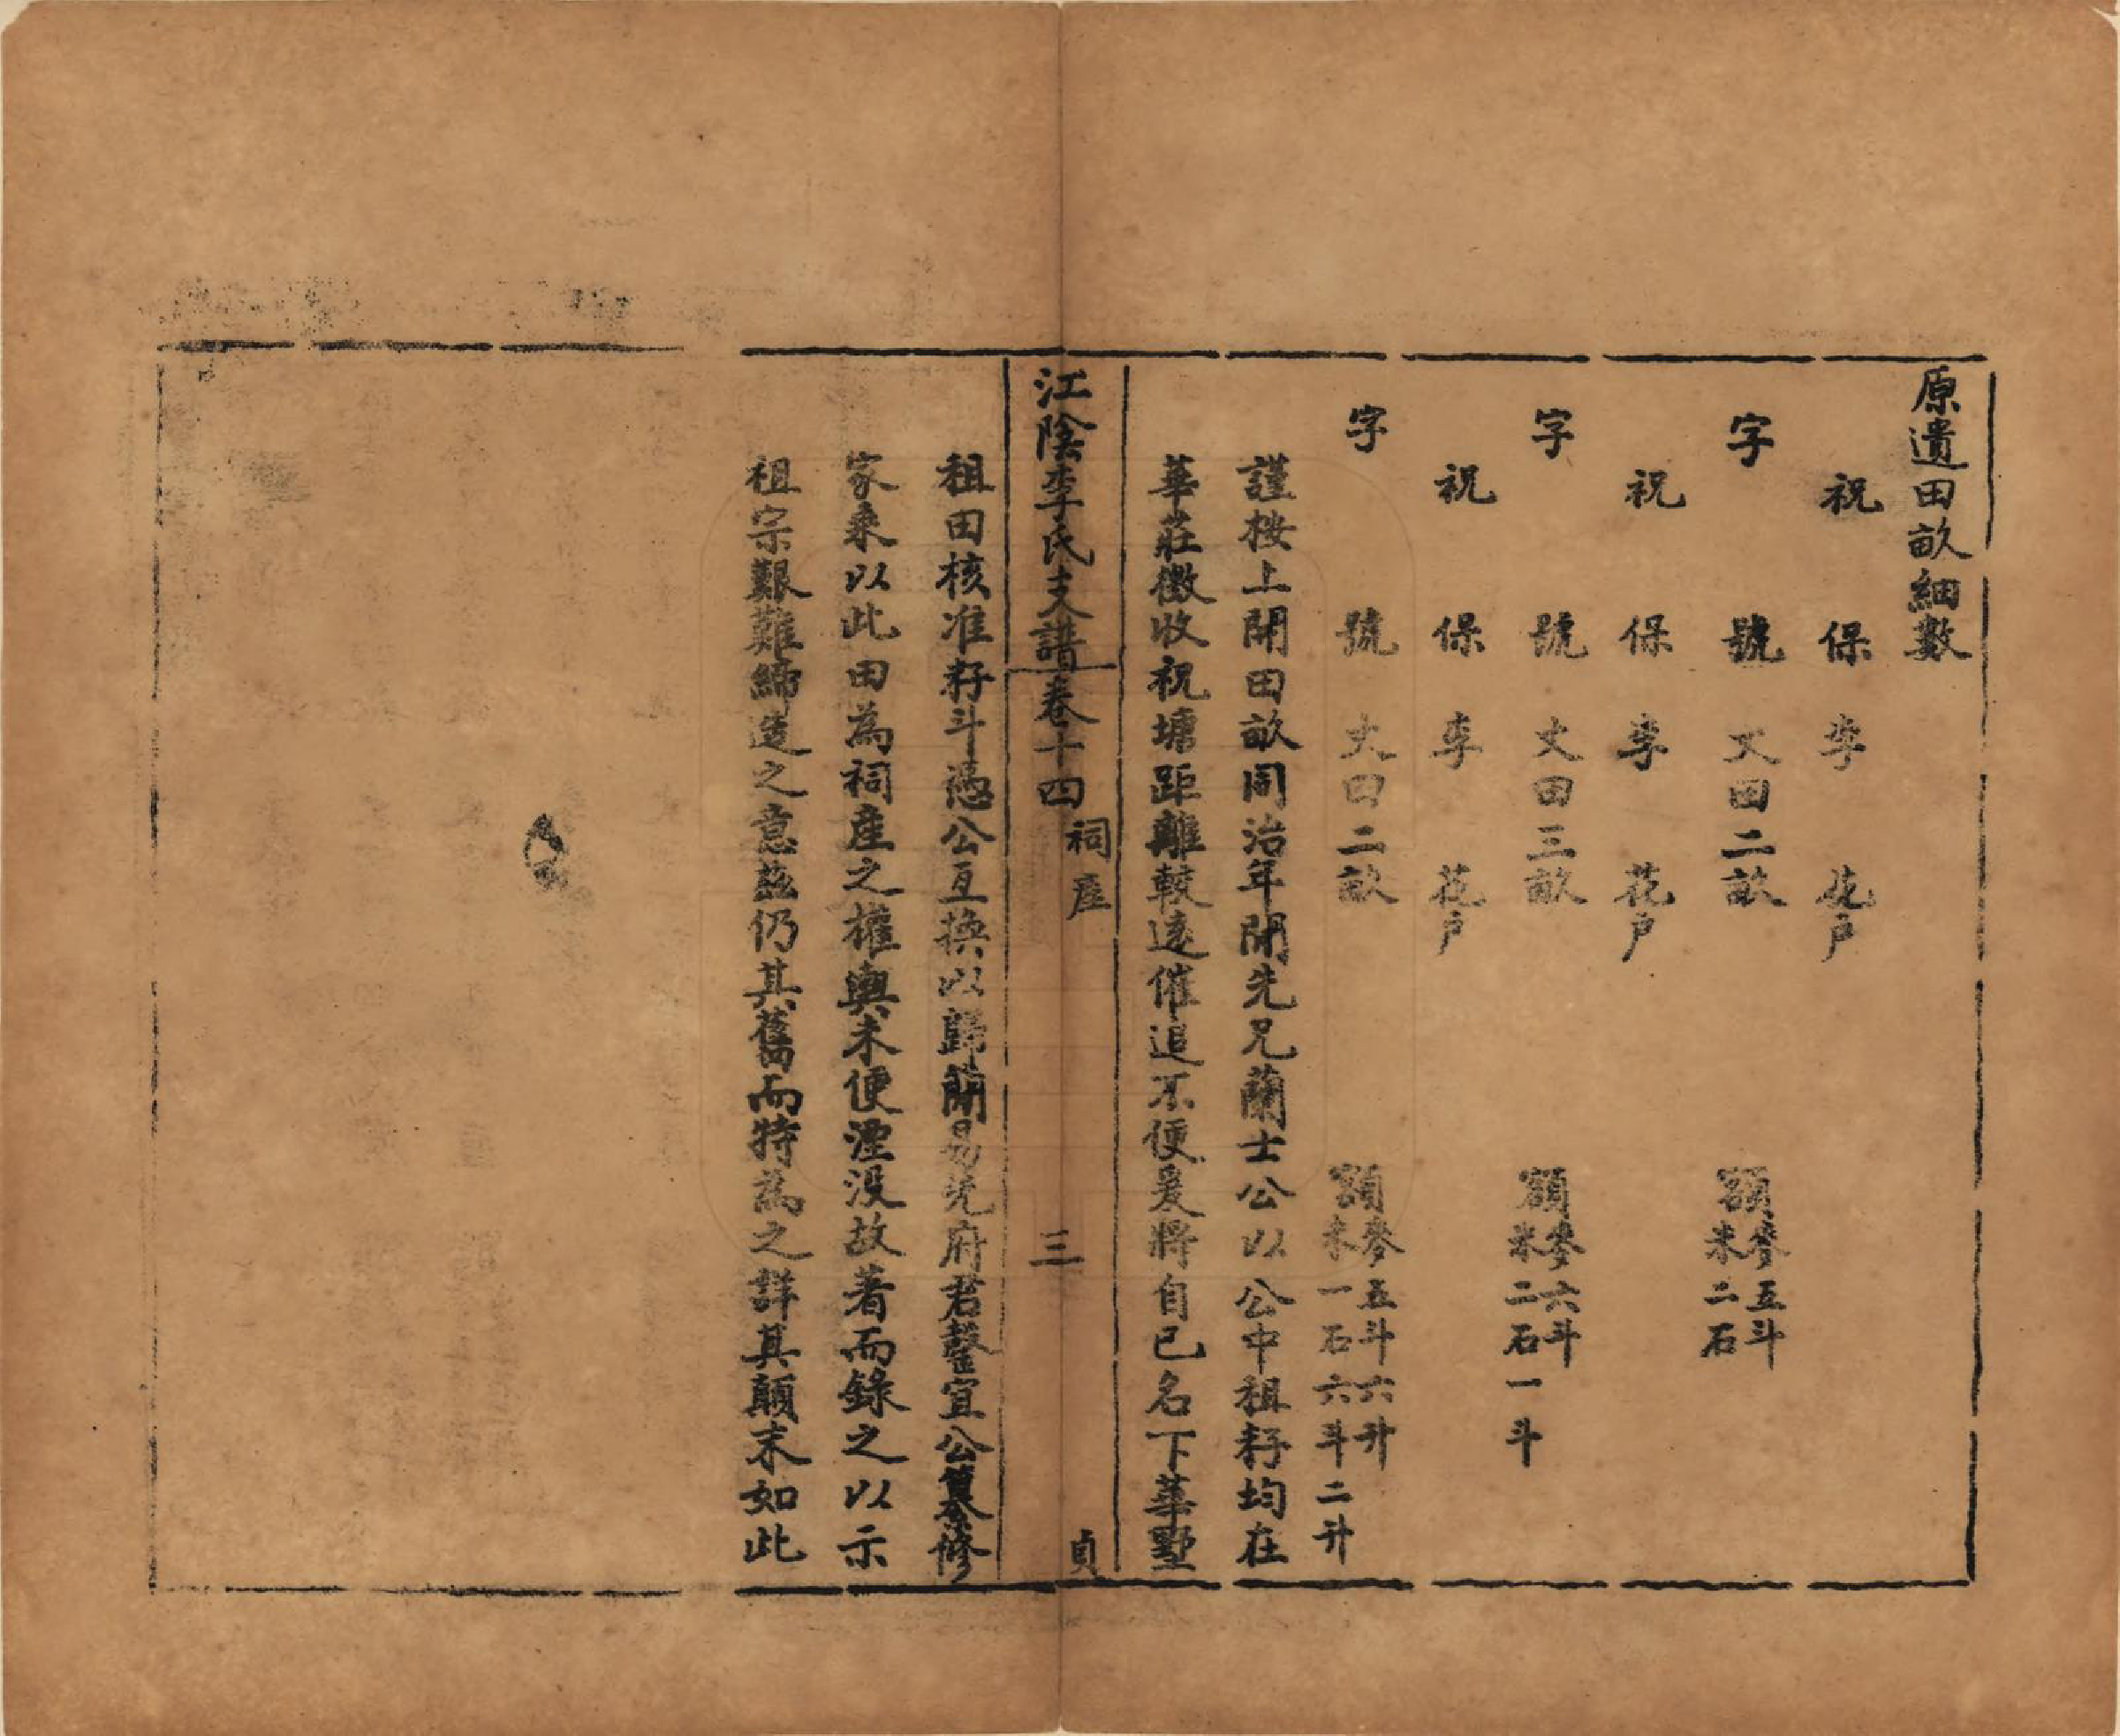 原遺田畝細數
祝 保 李 花戶
字 號 丈田二畝 額麥五斗米二石
祝 保 李 花戶
字 號 丈田三畝 額麥六斗米二石一斗
祝 保 李 花戶
字 號 丈田二畝 額麥五斗六升米一石六斗二升
謹桉上開田畝同治年間先兄蘭士公以公中租籽均在
華莊徵收祝塘距離較遠催追不便爰將自已名下華墅
江陰李氏支譜卷十四 祠產 三 貞
租田核准籽斗憑公互換以歸蕑易先府君馨宜公纂修
家乘以此田為祠產之權輿未便湮沒故著而錄之以示
祖宗艱難締造之意茲仍其舊而特為之詳其顛末如此